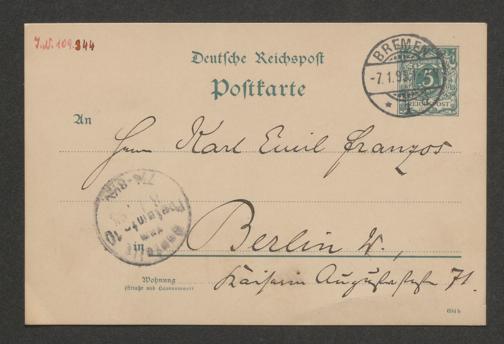 I.N. 109.344
Deutsche Reichspost
Postkarte
BREMEN
-7.1.9
5
REICHSPOST
An
Herrn Karl Emil Franzos
Bestellt
vom
Postamte
in Berlin W.,
Wohnung
(Straße und Hausnummer)
Kaiserin Augustastraße 71.